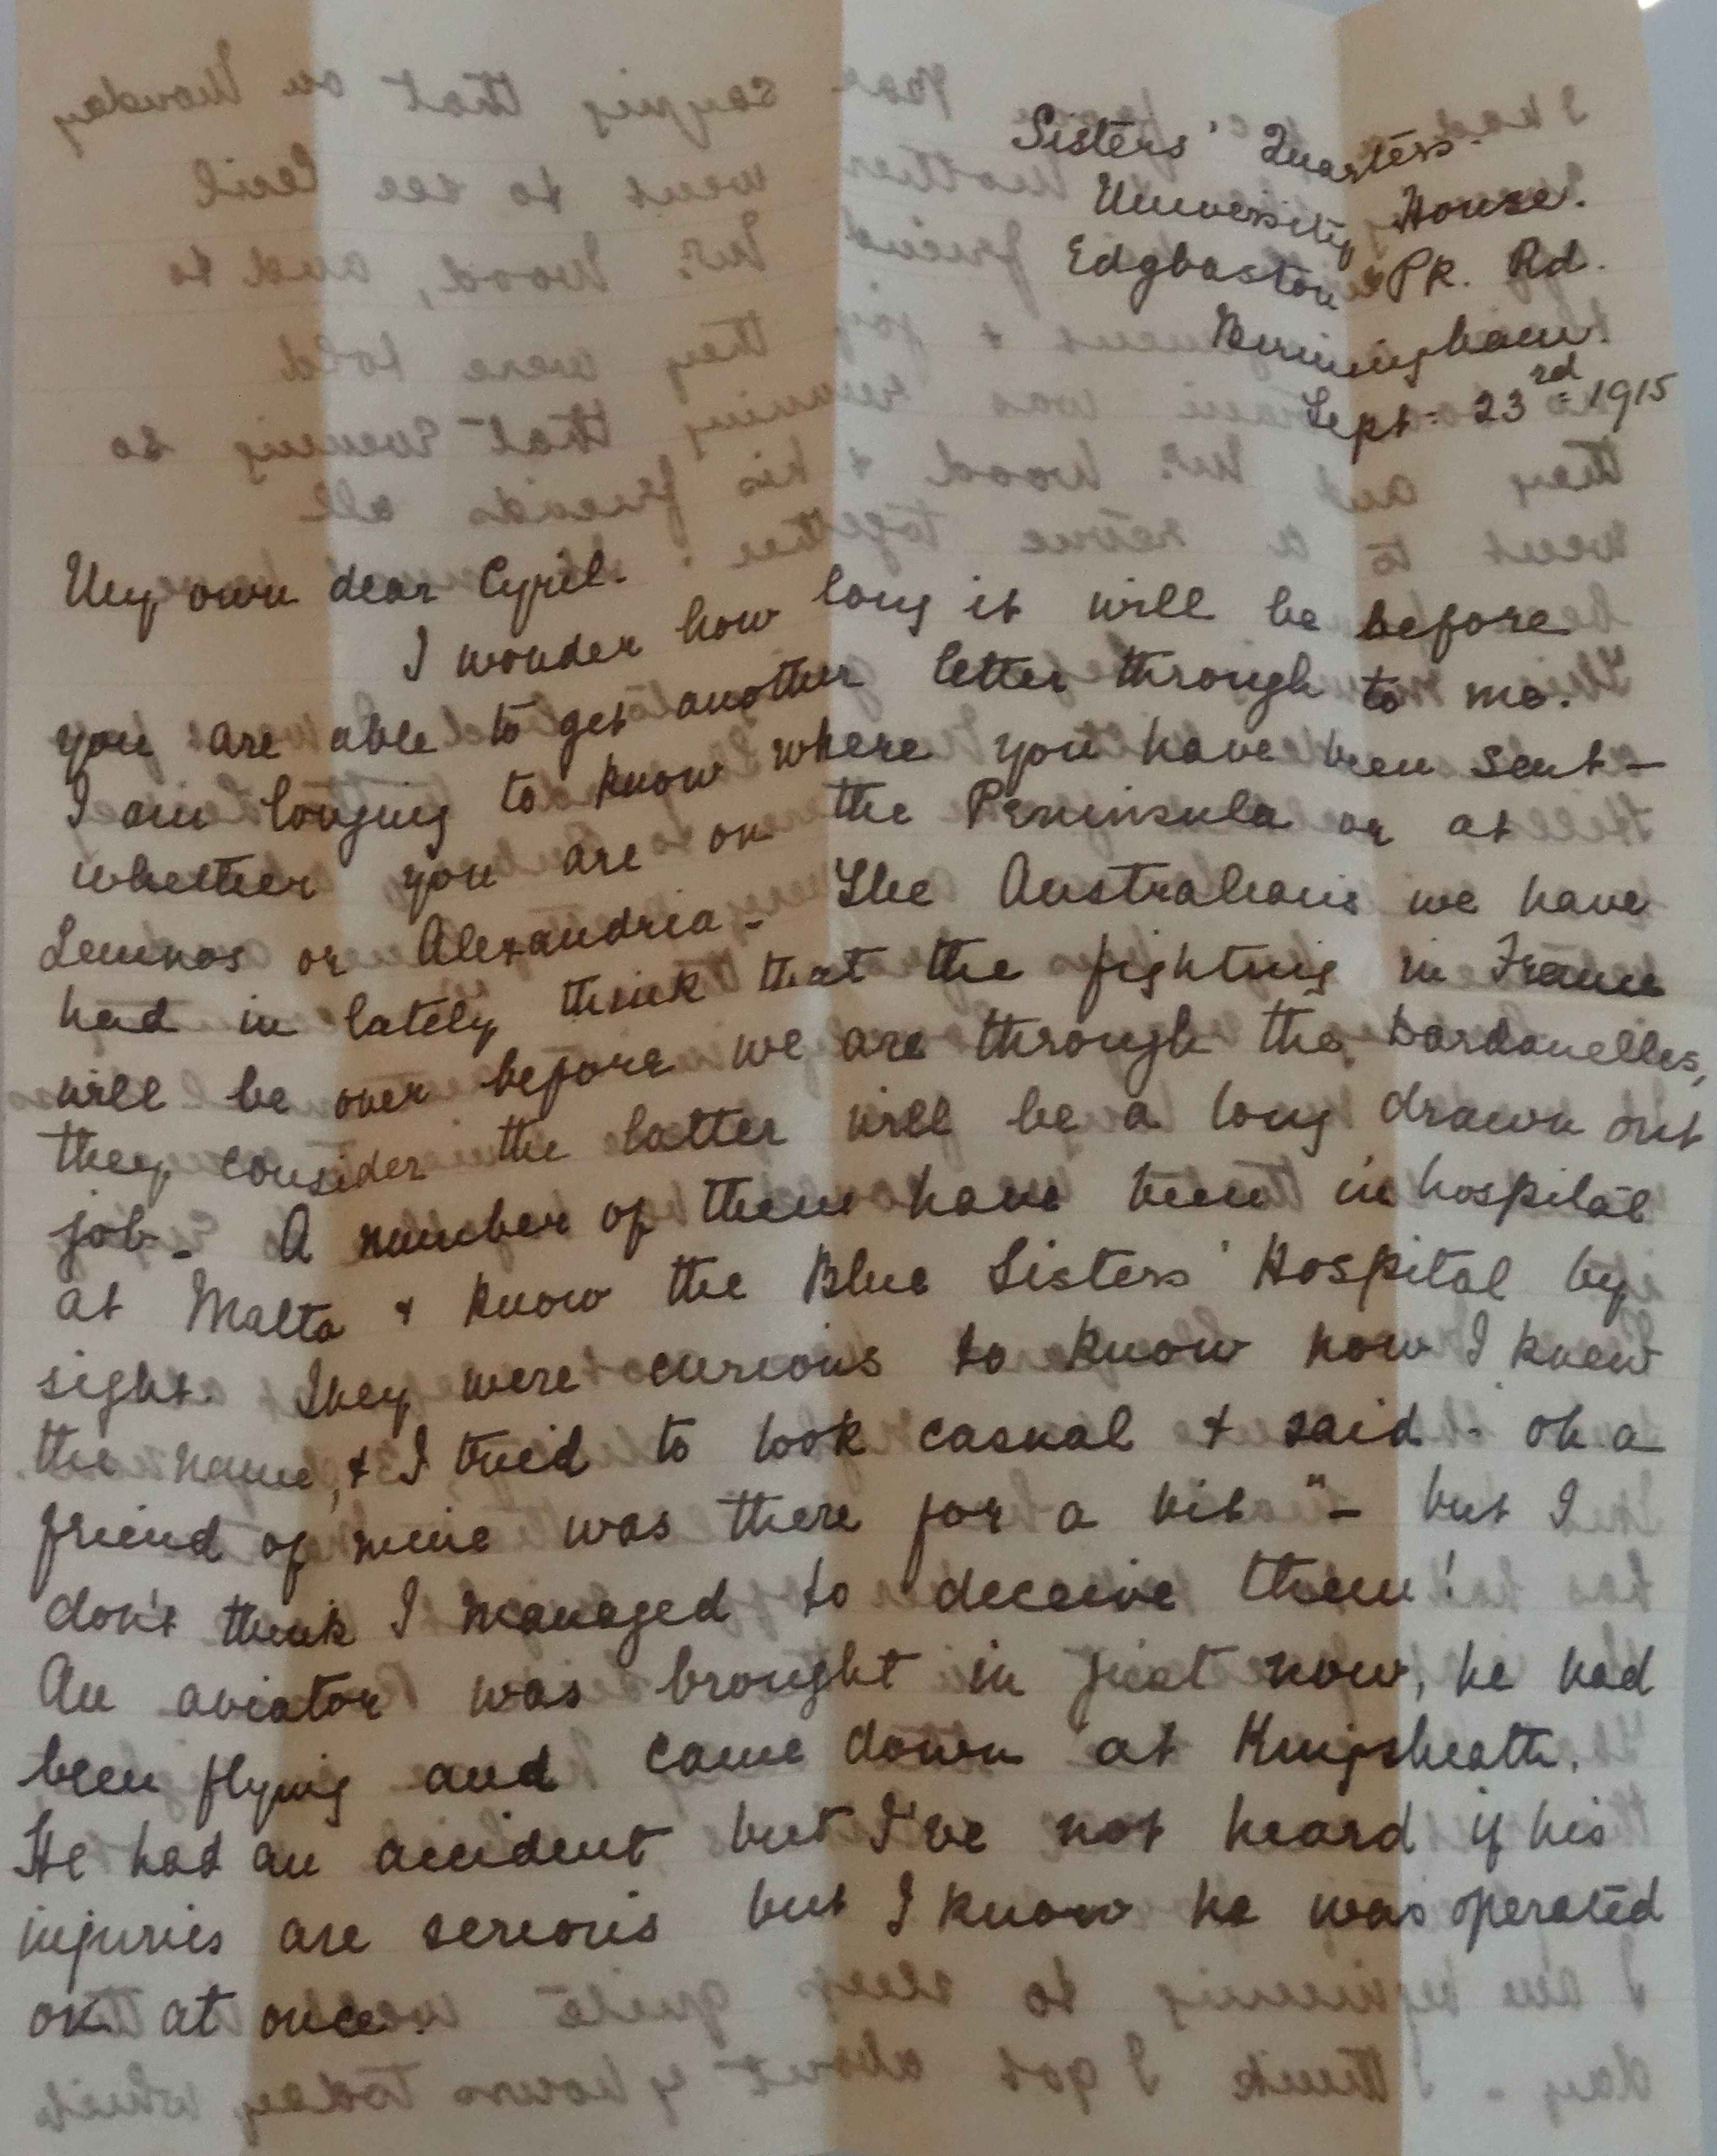 Sisters' Quarters.
University House.
Edgbaston Pk. Rd.
Birmingham.
Sept: 23rd 1915
My own dear Cyril.
I wonder how long it will be before
you are able to get another letter through to me.
I am longing to know where you have been sent —
whether you are on the Peninsula or at
Lemnos or Alexandria - The Australians we have
had in lately think that the fighting in France
will be over before we are through the Dardanelles,
they consider the latter will be a long drawn out
job - A number of them have been in hospital
at Malta & know the Blue Sisters' Hospital by
sight. They were curious to know how I knew
the name, & I tried to look casual & said - oh a
friend of mine was there for a bit" - but I
don't think I managed to deceive them!
An aviator was brought in just now, he had
been flying and came down at Kingsheath.
He had an accident but I've not heard if his
injuries are serious but I know he was operated
on at once.